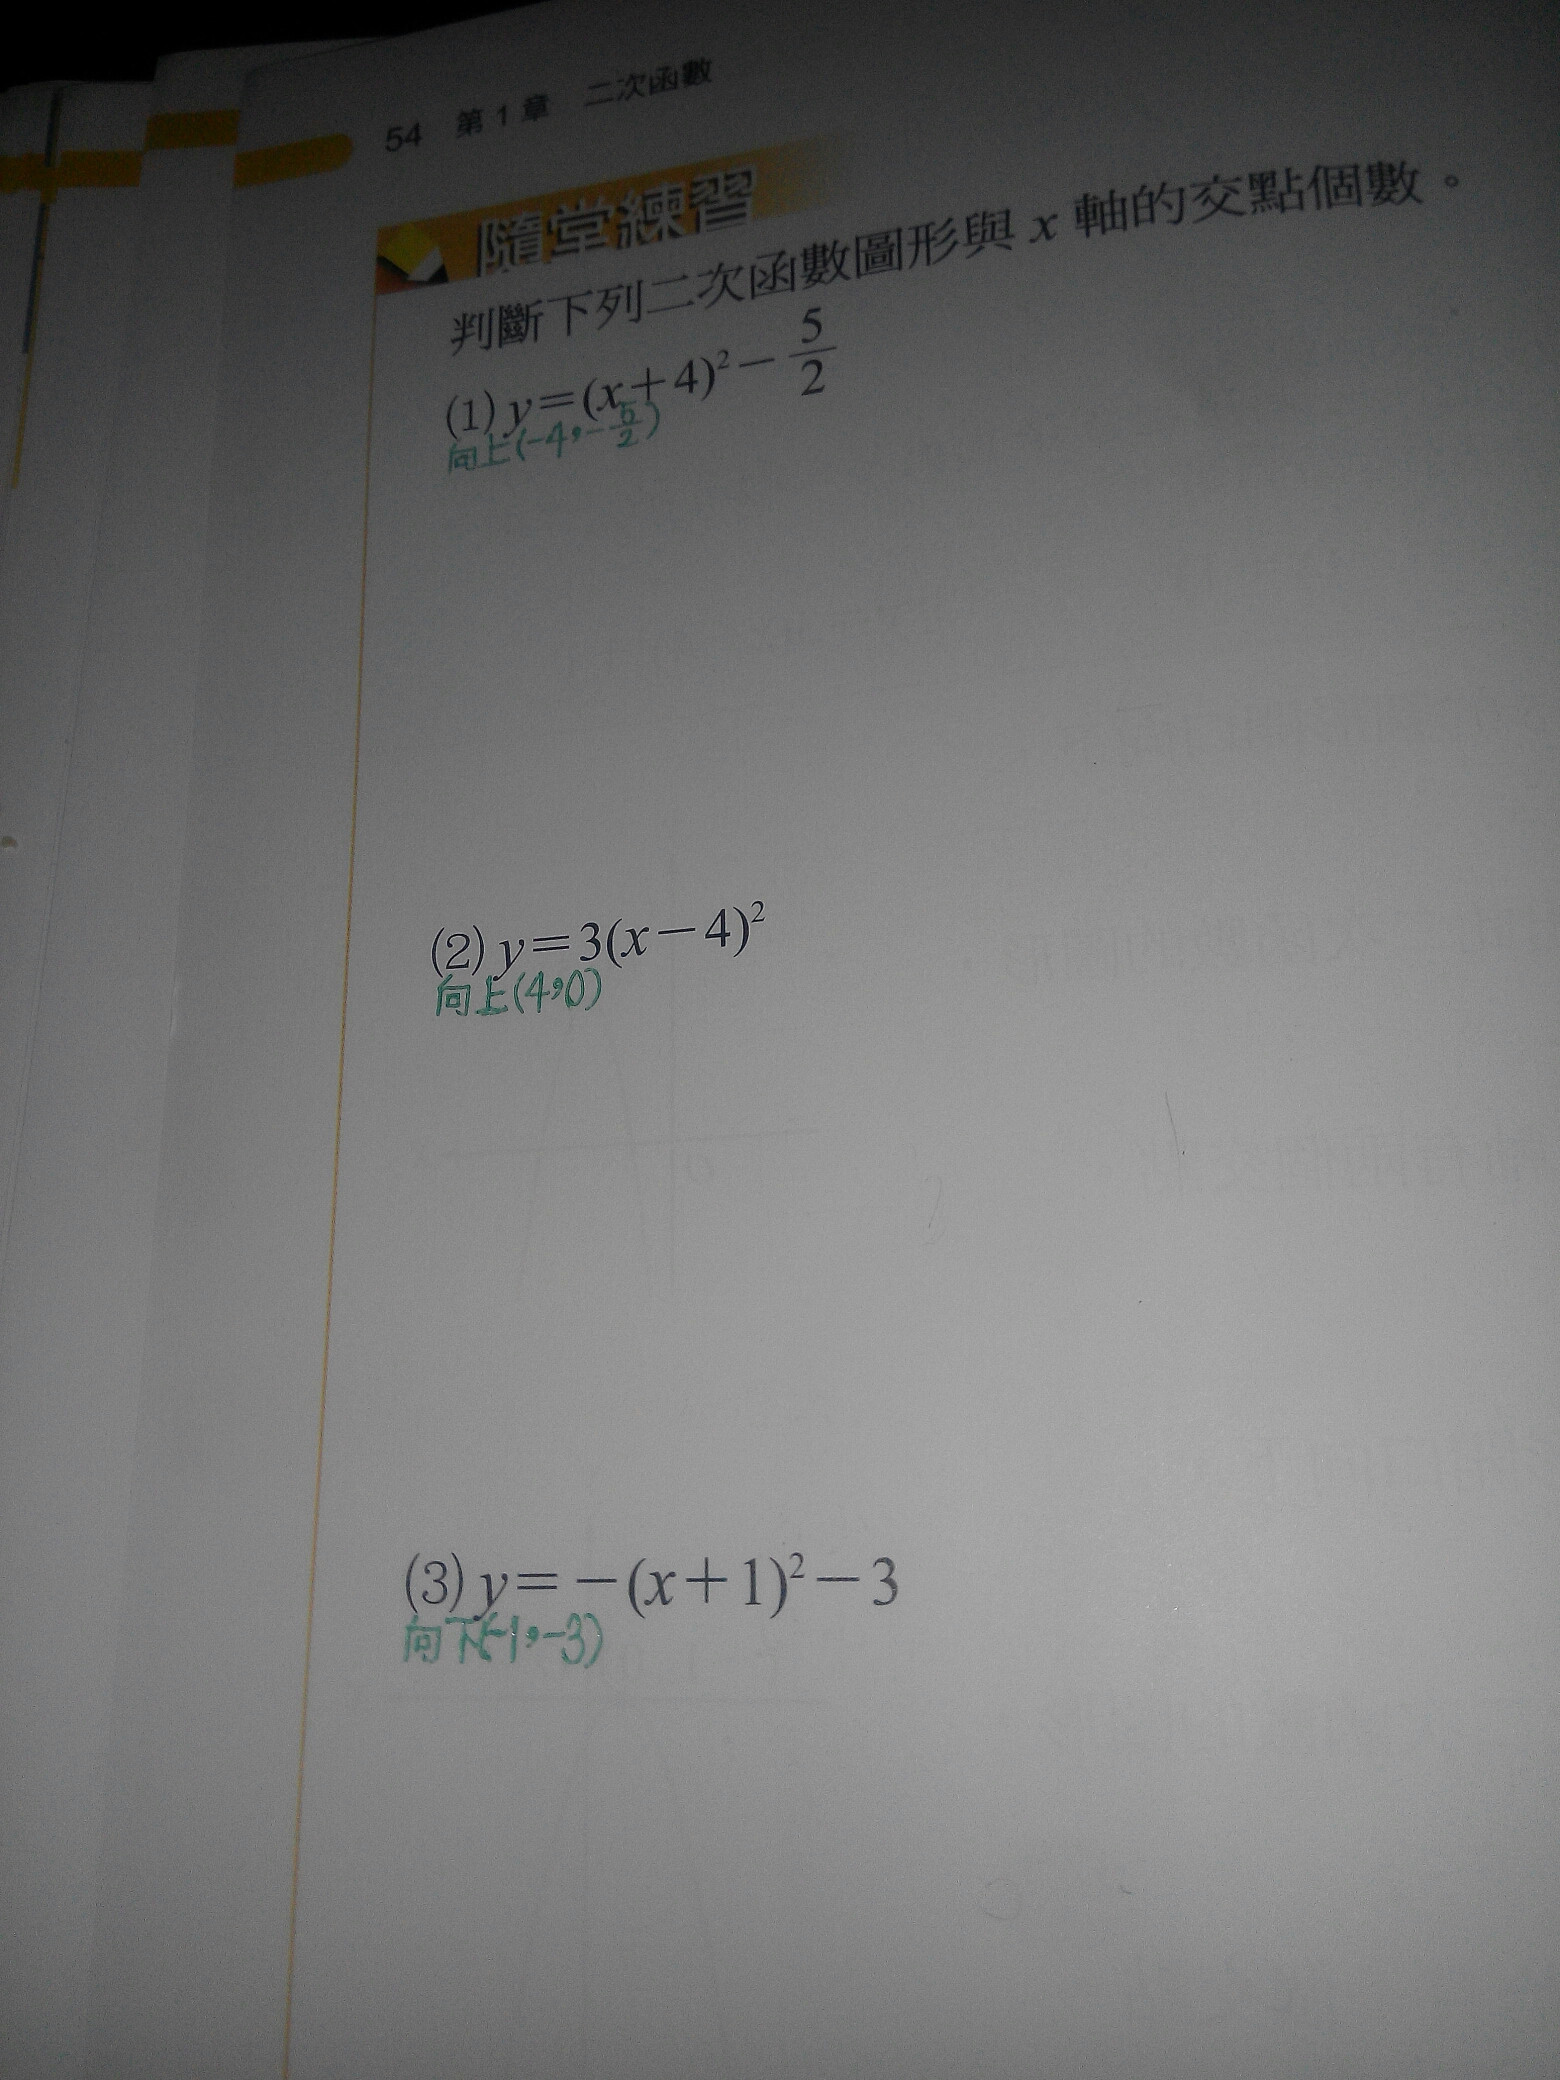 54 第1章 二次函數
隨堂練習
判斷下列二次函數圖形與 x 軸的交點個數。
(1) y=(x+4)²−5/2
向上(-4,-5/2)
(2) y=3(x−4)²
向上(4,0)
(3) y=−(x+1)²−3
向下(-1,-3)